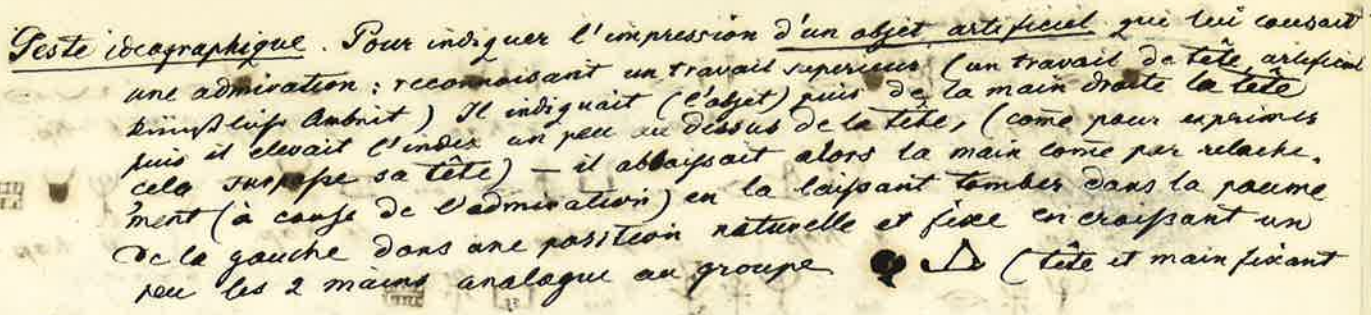 Geste idéographique. Pour indiquer l'impression d'un objet artificiel qui lui causait
une admiration; reconnaissant un travail superieur (un travail de tête, artificiel
künstliche Arbeit) Il indiquait (l'objet) puis de la main droite la tête
puis il elevait l'index un peu au dessus de la tête, (come pour exprimer
cela surpasse sa tête) — il abbaissait alors la main come par relache-
ment (à cause de l'admiration) en la laissant tomber dans la paume
de la gauche dans une position naturelle et fixe en croissant un
peu les 2 mains analogue au groupe (tête et main fixant